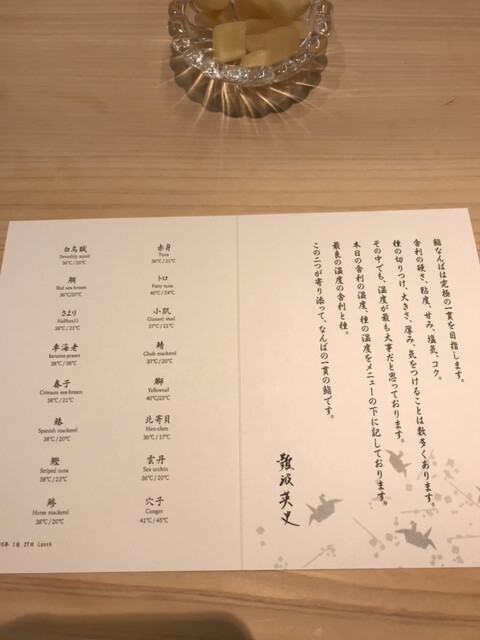 鮨なんばは究極の一貫を目指します。
舎利の硬さ、粘度、甘み、塩気、コク。
種の切りつけ、大きさ、厚み、気をつけることは数多くあります。
その中でも、温度が最も大事だと思っております。
本日の舎利の温度、種の温度をメニューの下に記しております。
最良の温度の舎利と種。
この二つが寄り添って、なんばの一貫の鮨です。
難波英史
赤身
Tuna
36℃/21℃
トロ
Fatty tuna
40℃/24℃
小肌
Gizzard shad
37℃/21℃
鯖
Chub mackerel
37℃/20℃
鰤
Yellowtail
40℃/23℃
北寄貝
Hen-clam
36℃/17℃
雲丹
Sea urchin
36℃/20℃
穴子
Conger
41℃/45℃
白烏賊
Swordtip squid
36℃/20℃
鯛
Red sea-bream
36℃/20℃
さより
Halfbeak
38℃/21℃
車海老
Kuruma prawn
38℃/38℃
春子
Crimson sea-bream
38℃/21℃
鰆
Spanish mackerel
38℃/20℃
鰹
Striped tuna
38℃/23℃
鯵
Horse mackerel
38℃/20℃
年 1月 27日 Lunch